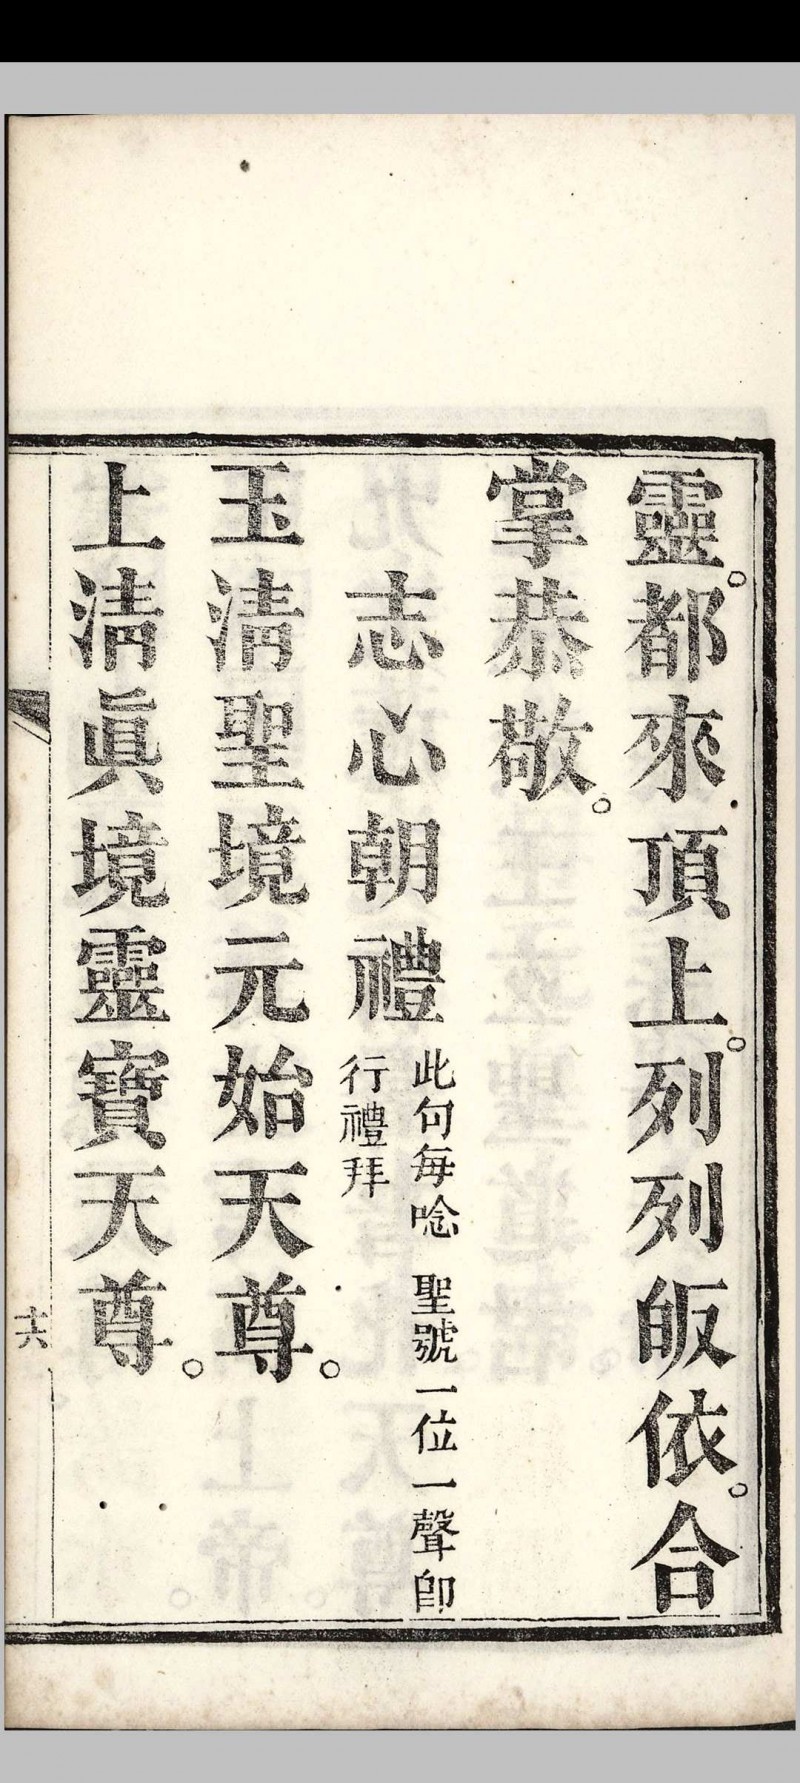 靈。都來頂上。列列皈依。合
掌恭敬。
志心朝禮
此句每唸 聖號一位一聲即
行禮拜
玉淸聖境元始天尊。
上淸眞境靈寶天尊。
十六